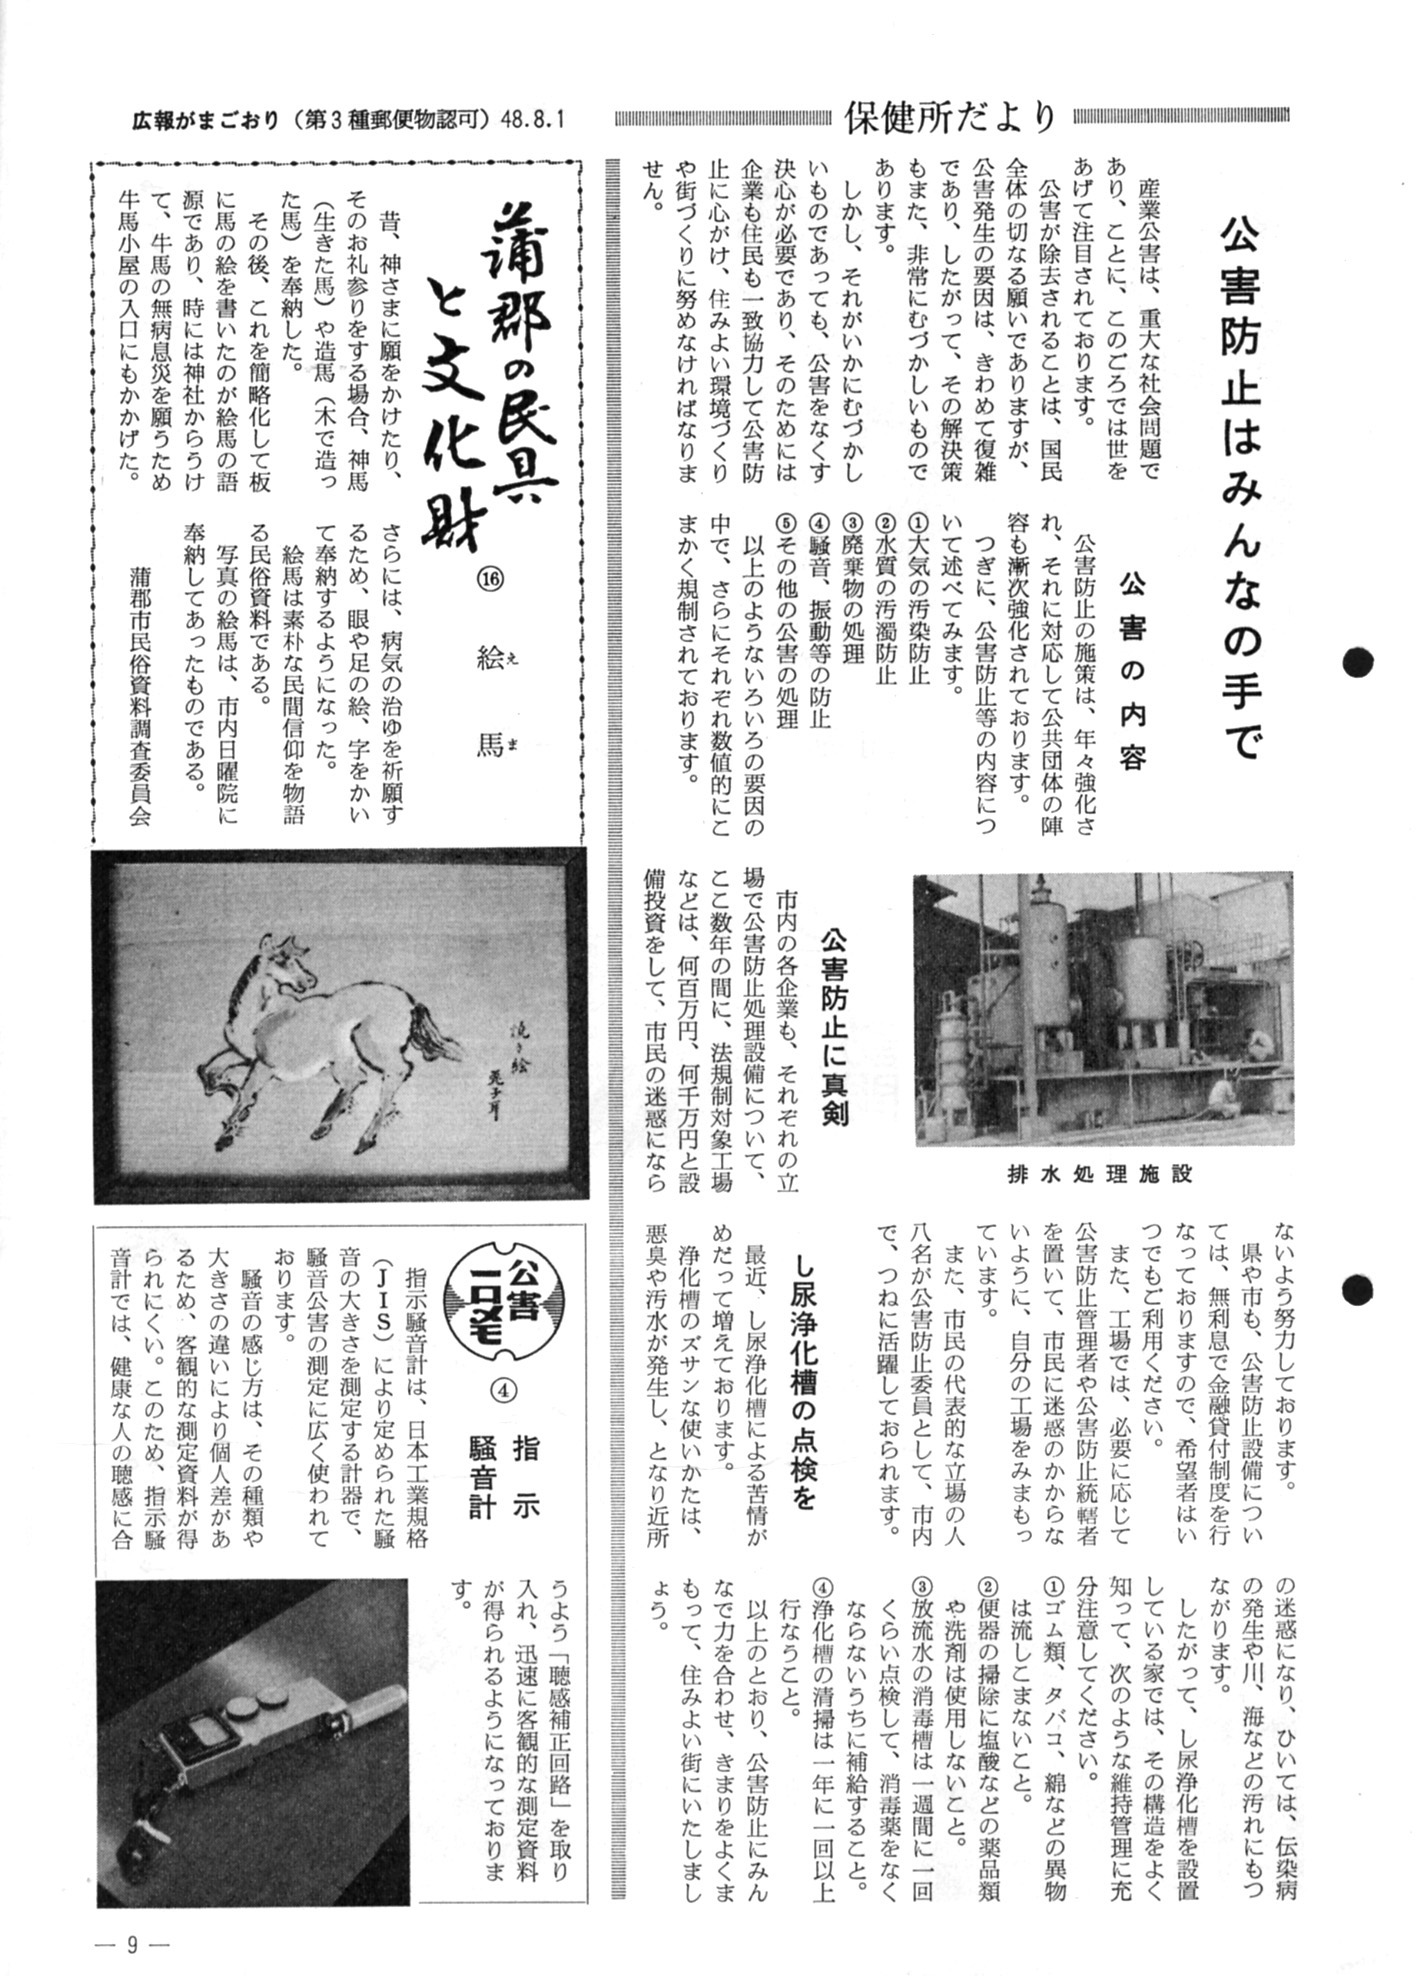 広報がまごおり（第3種郵便物認可）48.8.1
保健所だより
公害防止はみんなの手で
産業公害は、重大な社会問題で
あり、ことに、このごろでは世を
あげて注目されております。
公害が除去されることは、国民
全体の切なる願いでありますが、
公害発生の要因は、きわめて復雑
であり、したがって、その解決策
もまた、非常にむづかしいもので
あります。
しかし、それがいかにむづかし
いものであっても、公害をなくす
決心が必要であり、そのためには
企業も住民も一致協力して公害防
止に心がけ、住みよい環境づくり
や街づくりに努めなければなりま
せん。
公害の内容
公害防止の施策は、年々強化さ
れ、それに対応して公共団体の陣
容も漸次強化されております。
つぎに、公害防止等の内容につ
いて述べてみます。
①大気の汚染防止
②水質の汚濁防止
③廃棄物の処理
④騒音、振動等の防止
⑤その他の公害の処理
以上のようないろいろの要因の
中で、さらにそれぞれ数値的にこ
まかく規制されております。
排水処理施設
公害防止に真剣
市内の各企業も、それぞれの立
場で公害防止処理設備について、
ここ数年の間に、法規制対象工場
などは、何百万円、何千万円と設
備投資をして、市民の迷惑になら
ないよう努力しております。
県や市も、公害防止設備につい
ては、無利息で金融貸付制度を行
なっておりますので、希望者はい
つでもご利用ください。
また、工場では、必要に応じて
公害防止管理者や公害防止統轄者
を置いて、市民に迷惑のかからな
いように、自分の工場をみまもっ
ています。
また、市民の代表的な立場の人
八名が公害防止委員として、市内
で、つねに活躍しておられます。
し尿浄化槽の点検を
最近、し尿浄化槽による苦情が
めだって増えております。
浄化槽のズサンな使いかたは、
悪臭や汚水が発生し、となり近所
の迷惑になり、ひいては、伝染病
の発生や川、海などの汚れにもつ
ながります。
したがって、し尿浄化槽を設置
している家では、その構造をよく
知って、次のような維持管理に充
分注意してください。
①ゴム類、タバコ、綿などの異物
は流しこまないこと。
②便器の掃除に塩酸などの薬品類
や洗剤は使用しないこと。
③放流水の消毒槽は一週間に一回
くらい点検して、消毒薬をなく
ならないうちに補給すること。
④浄化槽の清掃は一年に一回以上
行なうこと。
以上のとおり、公害防止にみん
なで力を合わせ、きまりをよくま
もって、住みよい街にいたしまし
ょう。
蒲郡の民具
と文化財
⑯ 絵馬
えま
昔、神さまに願をかけたり、
そのお礼参りをする場合、神馬
（生きた馬）や造馬（木で造っ
た馬）を奉納した。
その後、これを簡略化して板
に馬の絵を書いたのが絵馬の語
源であり、時には神社からうけ
て、牛馬の無病息災を願うため
牛馬小屋の入口にもかかげた。
さらには、病気の治ゆを祈願す
るため、眼や足の絵、字をかい
て奉納するようになった。
絵馬は素朴な民間信仰を物語
る民俗資料である。
写真の絵馬は、市内日曜院に
奉納してあったものである。
蒲郡市民俗資料調査委員会
焼き絵
公害
一口メモ
④ 指示
騒音計
指示騒音計は、日本工業規格
（JIS）により定められた騒
音の大きさを測定する計器で、
騒音公害の測定に広く使われて
おります。
騒音の感じ方は、その種類や
大きさの違いにより個人差があ
るため、客観的な測定資料が得
られにくい。このため、指示騒
音計では、健康な人の聴感に合
うよう「聴感補正回路」を取り
入れ、迅速に客観的な測定資料
が得られるようになっておりま
す。
— 9 —